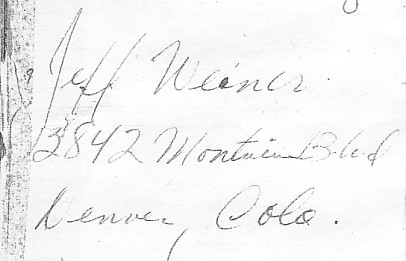 Jeff Weiner
3842 Montview Blvd
Denver, Colo.